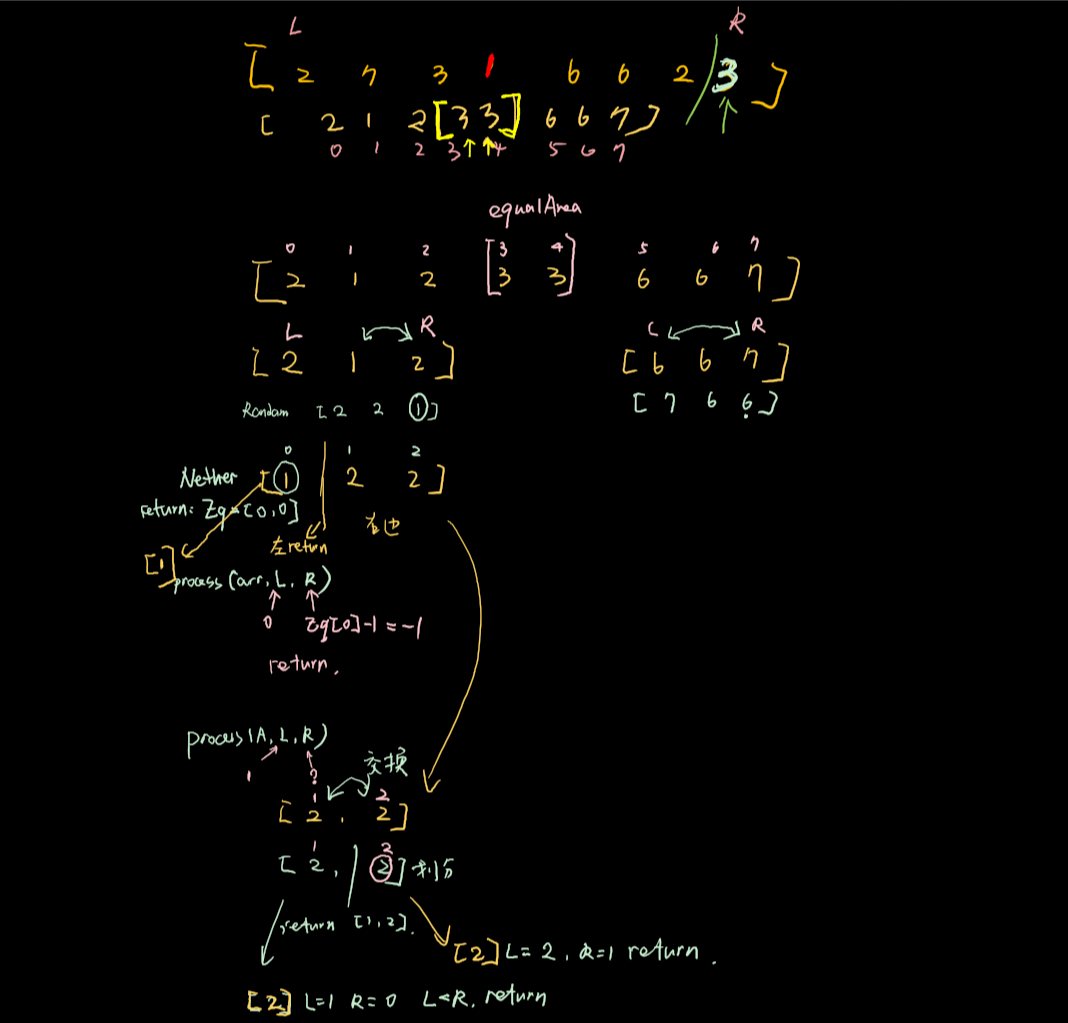 L R
[ 2 7 3 1 6 6 2 / 3 ]
[ 2 1 2 [ 3 3 ] 6 6 7 ]
0 1 2 3 4 5 6 7
equalArea
0 1 2 3 4 5 6 7
[ 2 1 2 [ 3 3 ] 6 6 7 ]
L R L R
[ 2 1 2 ] [ 6 6 7 ]
Random [ 2 2 1 ] [ 7 6 6 ]
0 1 2
Nether [ 1 | 2 2 ]
return: Zq = [0,0]
左return 右也
[1]
process (arr, L, R)
0 Zq[0]-1 = -1
return.
process(A, L, R)
1 2
交换
1 2
[ 2, 2 ]
1 2
[ 2, | 2 ] 划分
return [1,2].
[2] L= 2, R=1 return.
[2] L=1 R=0 L<R, return